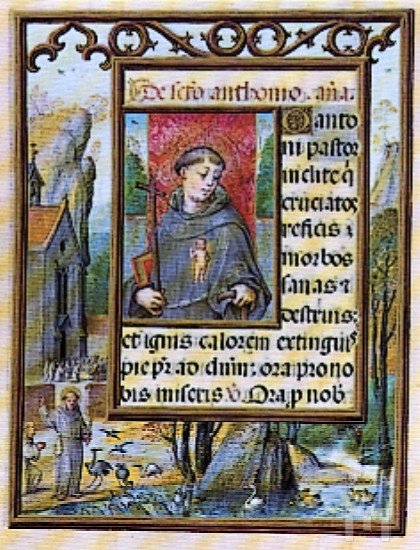 De scto anthonio. ana.
O anto
ni pastor
inclite q̄
cruciatos
reficis ⁊
morbos
sanas ⁊
destruis:
et ignis calorem extinguis
pie pr̄ ad dnm̄: ora prono
bis miseris ℣. Ora p nob